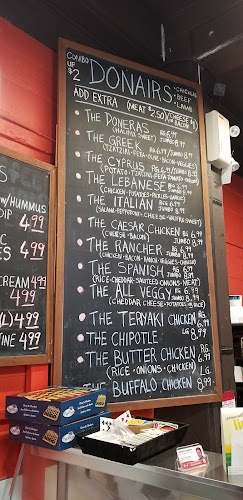 COMBO
UP
$2
DONAIRS
CHICKEN
BEEF
LAMB
ADD EXTRA (MEAT $2.50)
THE DONERAS RG 6.99
(HALIFAX SWEET) JUMBO 8.99
THE GREEK RG 6.99 / JUMBO 8.99
(TZATZIKI-FETA-OLIVE-BACON-VEGGIES)
THE CYPRUS RG 6.99 / JUMBO 8.99
THE LEBANESE RG 6.99
(CHICKEN-POTATOES-PICKLES-GARLIC)
THE ITALIAN RG 6.99
THE CAESAR CHICKEN RG 6.99
(CHEESE-BACON) JUMBO 8.99
THE RANCHER RG 6.99
(CHICKEN-BACON-RANCH-VEGGIES-CHEESE)
THE SPANISH RG 6.99
(RICE-CHEDDAR-SAUTEED ONIONS-MEAT)
THE ALL VEGGY RG 6.99
JUMBO 8.99
(CHEDDAR CHEESE-POTATOES-RICE)
THE TERIYAKI CHICKEN RG 6.99
THE CHIPOTLE LG 8.99
THE BUTTER CHICKEN RG 6.99
(RICE-ONIONS-CHICKEN)
THE BUFFALO CHICKEN LG 8.99
W/HUMMUS
DIP 4.99
4.99
CREAM 4.99
4.99
4.99
4.99